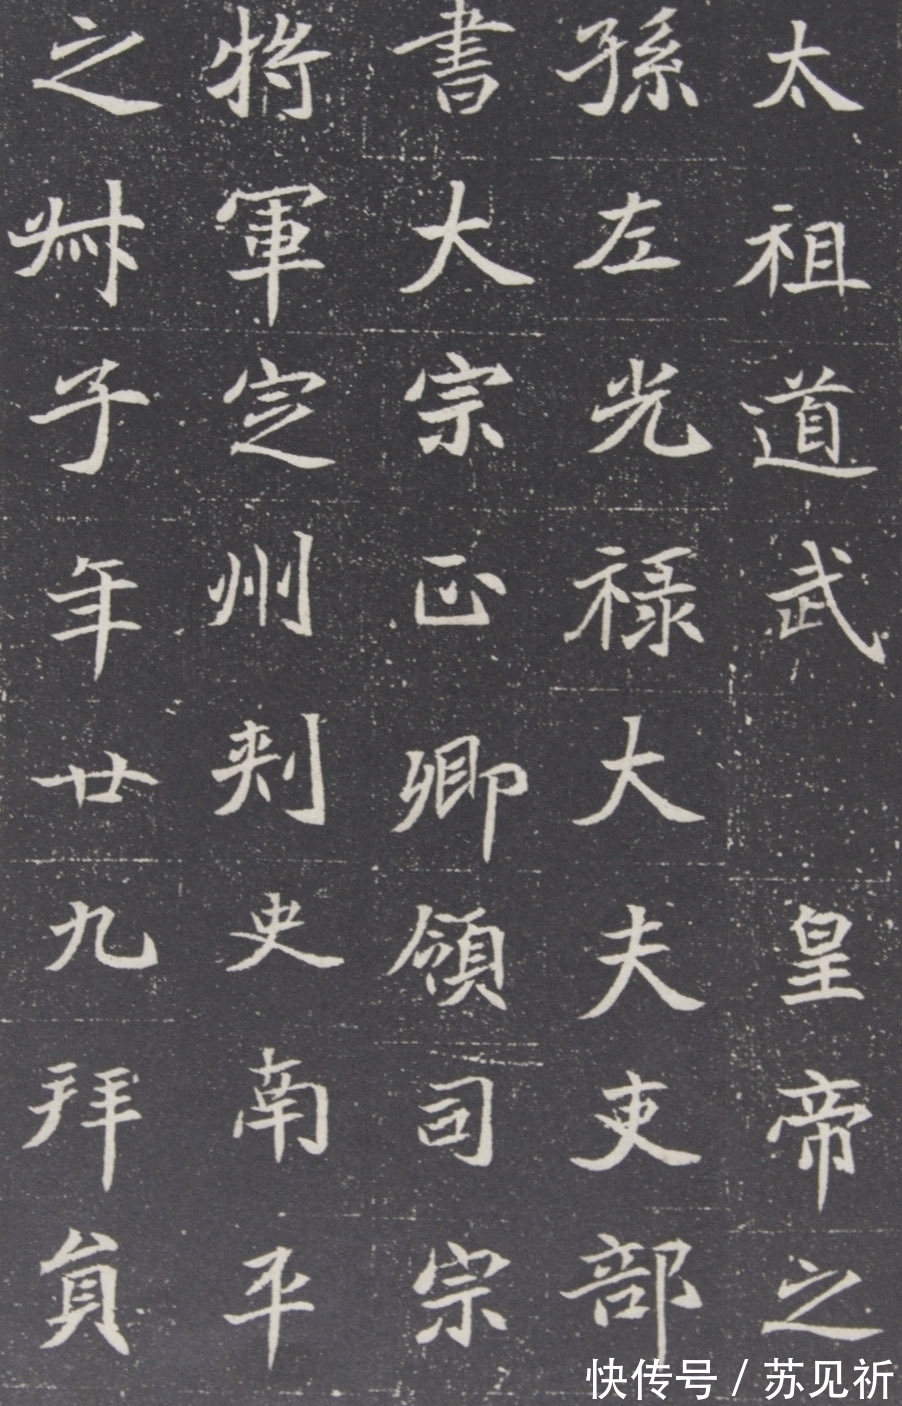 太祖道武 皇帝之
孫左光禄大夫吏部
書大宗正卿領司宗
将軍定州刾史南平
之叔子年廿九拜員
快传号 / 苏见祈